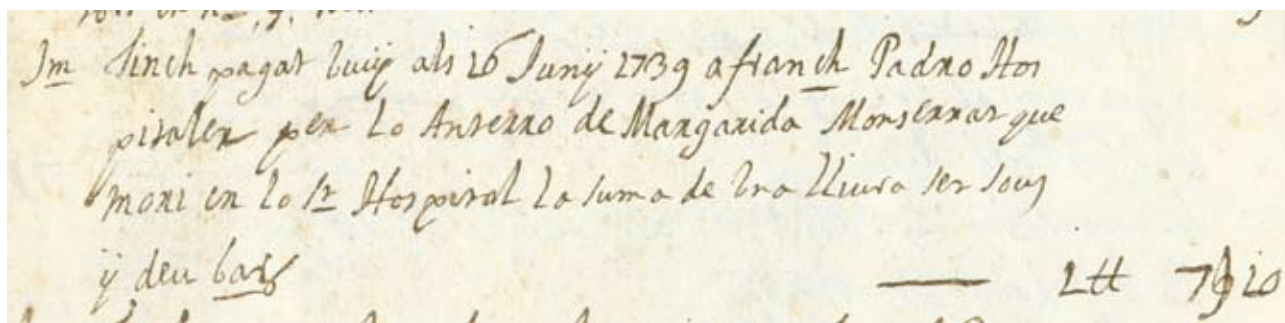 Jm Tinch pagat vuÿ als 16 Junÿ 1739 a franch Padro Hos
pitaler per lo Anterro de Margarida Monserrat que
mori en lo St Hospital la suma de vna lliura set sous
ÿ deu bars
1 tt 7 ſ 10